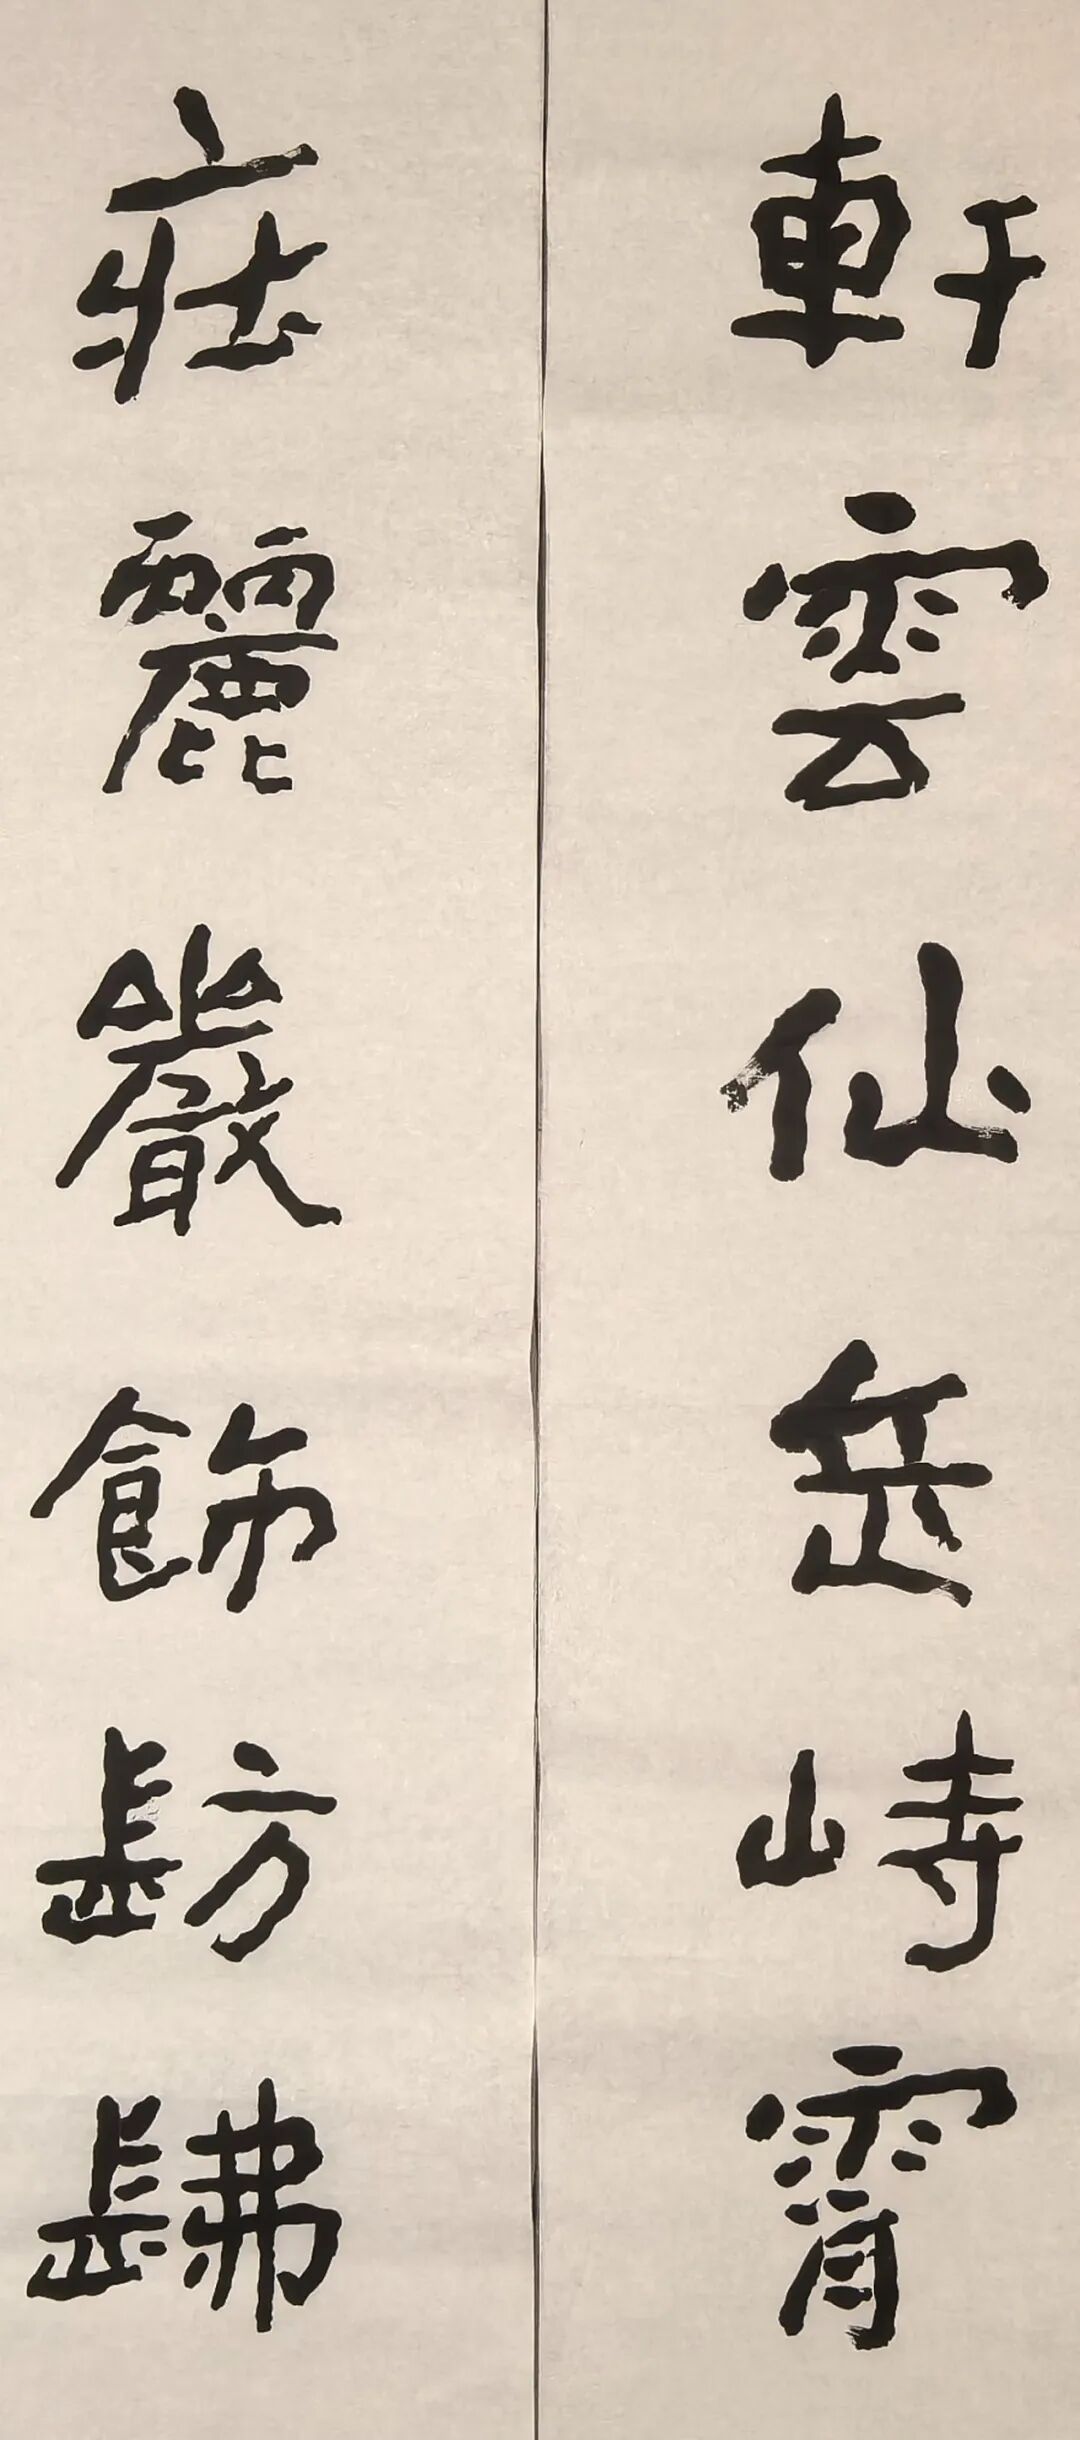 軒雲仙岳峙霄
莊麗嚴飾髣髴